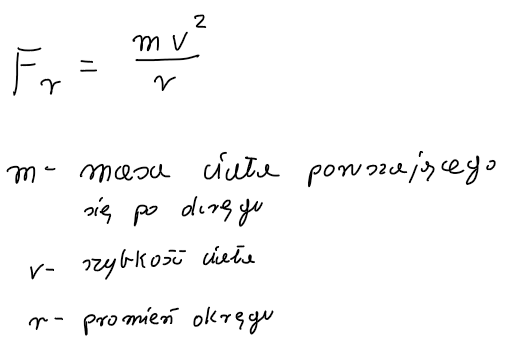 F_r = \frac{m v^2}{r}
m - masa ciała poruszającego
się po okręgu
v - szybkość ciała
r - promień okręgu